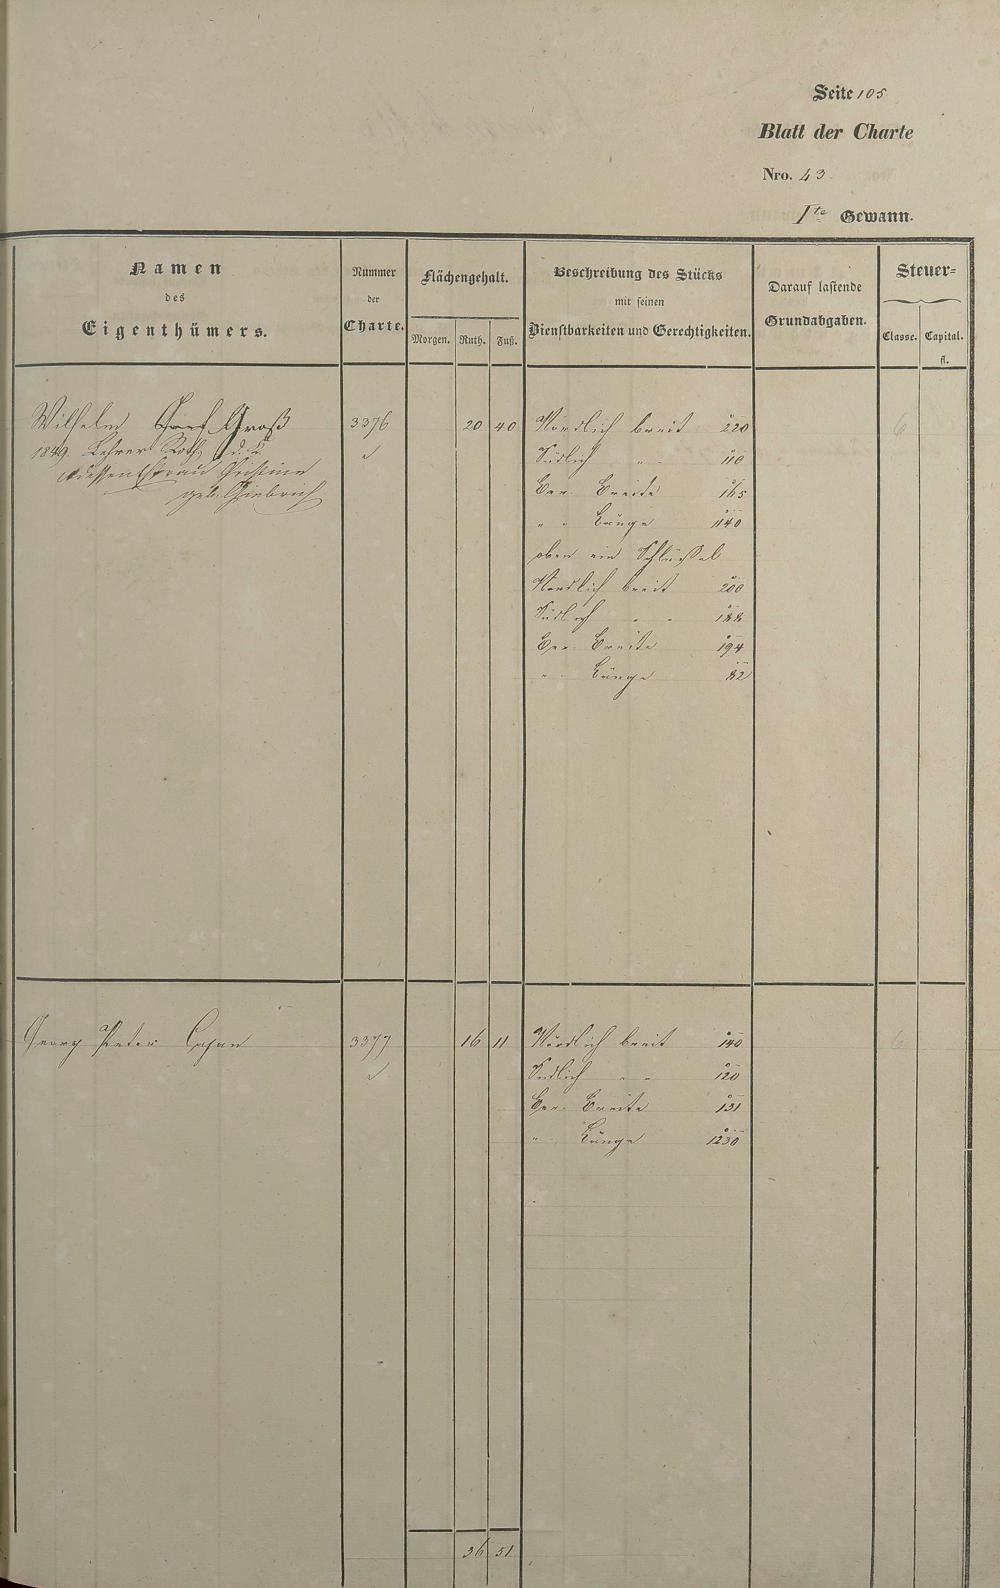 Seite 105
Blatt der Charte
Nro. 43.
Ite Gewann.
Namen
des
Eigenthümers.
Nummer
der
Charte.
Flächengehalt.
Morgen. Ruth. Fuß.
Beschreibung des Stücks
mit seinen
Dienstbarkeiten und Gerechtigkeiten.
Darauf lastende
Grundabgaben.
Steuer-
Classe. Capital.
fl.
Wilhelm Graf Groß 3376 20 40 Nördlich breit 220 6
1849 Lehrer Roth u. Südlich " " 110
dessen Ehefrau Christine Ber. Breite 165
geb. " " Länge 1140
oben ein Schlüssel
Nördlich breit 200
Südlich " " 188
Ber. Breite 194
" Länge 82
Georg Peter 3377 16 11 Nördlich breit 140 6
Südlich " " 120
Ber. Breite 131
" Länge 1230
36 51